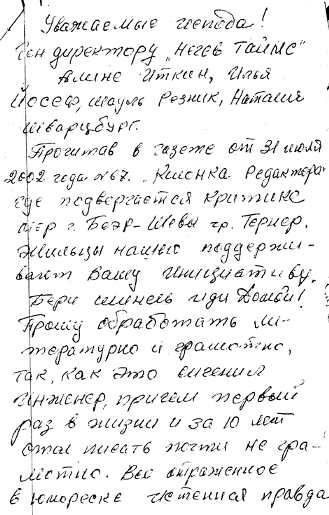 Уважаемые господа!
Ген директору "Негев Таймс"
Алине Иткин, Илья
Йосеф, Шауль Резник, Наталия
Шварцбург.
Прочитав в газете от 31 июля
2002 года №67. "Колонка Редактора"
где подвергается критике
мэр г. Беэр-Шевы гр. Тернер.
Жильцы нашии поддержи-
вают Вашу инициативу.
Бери шинель иди Домой!
Прошу обработать ли-
тературно и грамотно,
так, как это сочинил
инженер, причем первый
раз в жизни и за 10 лет
стал писать почти не гра-
мотно. Всё отраженное
в юмореске истенная правда